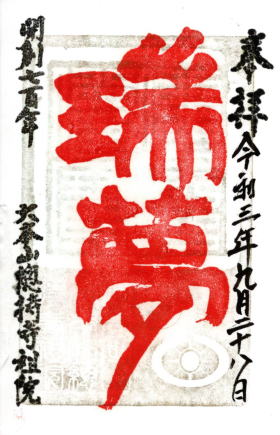 奉拝 令和三年九月二十八日
瑞夢
開創七百年
大本山總持寺祖院